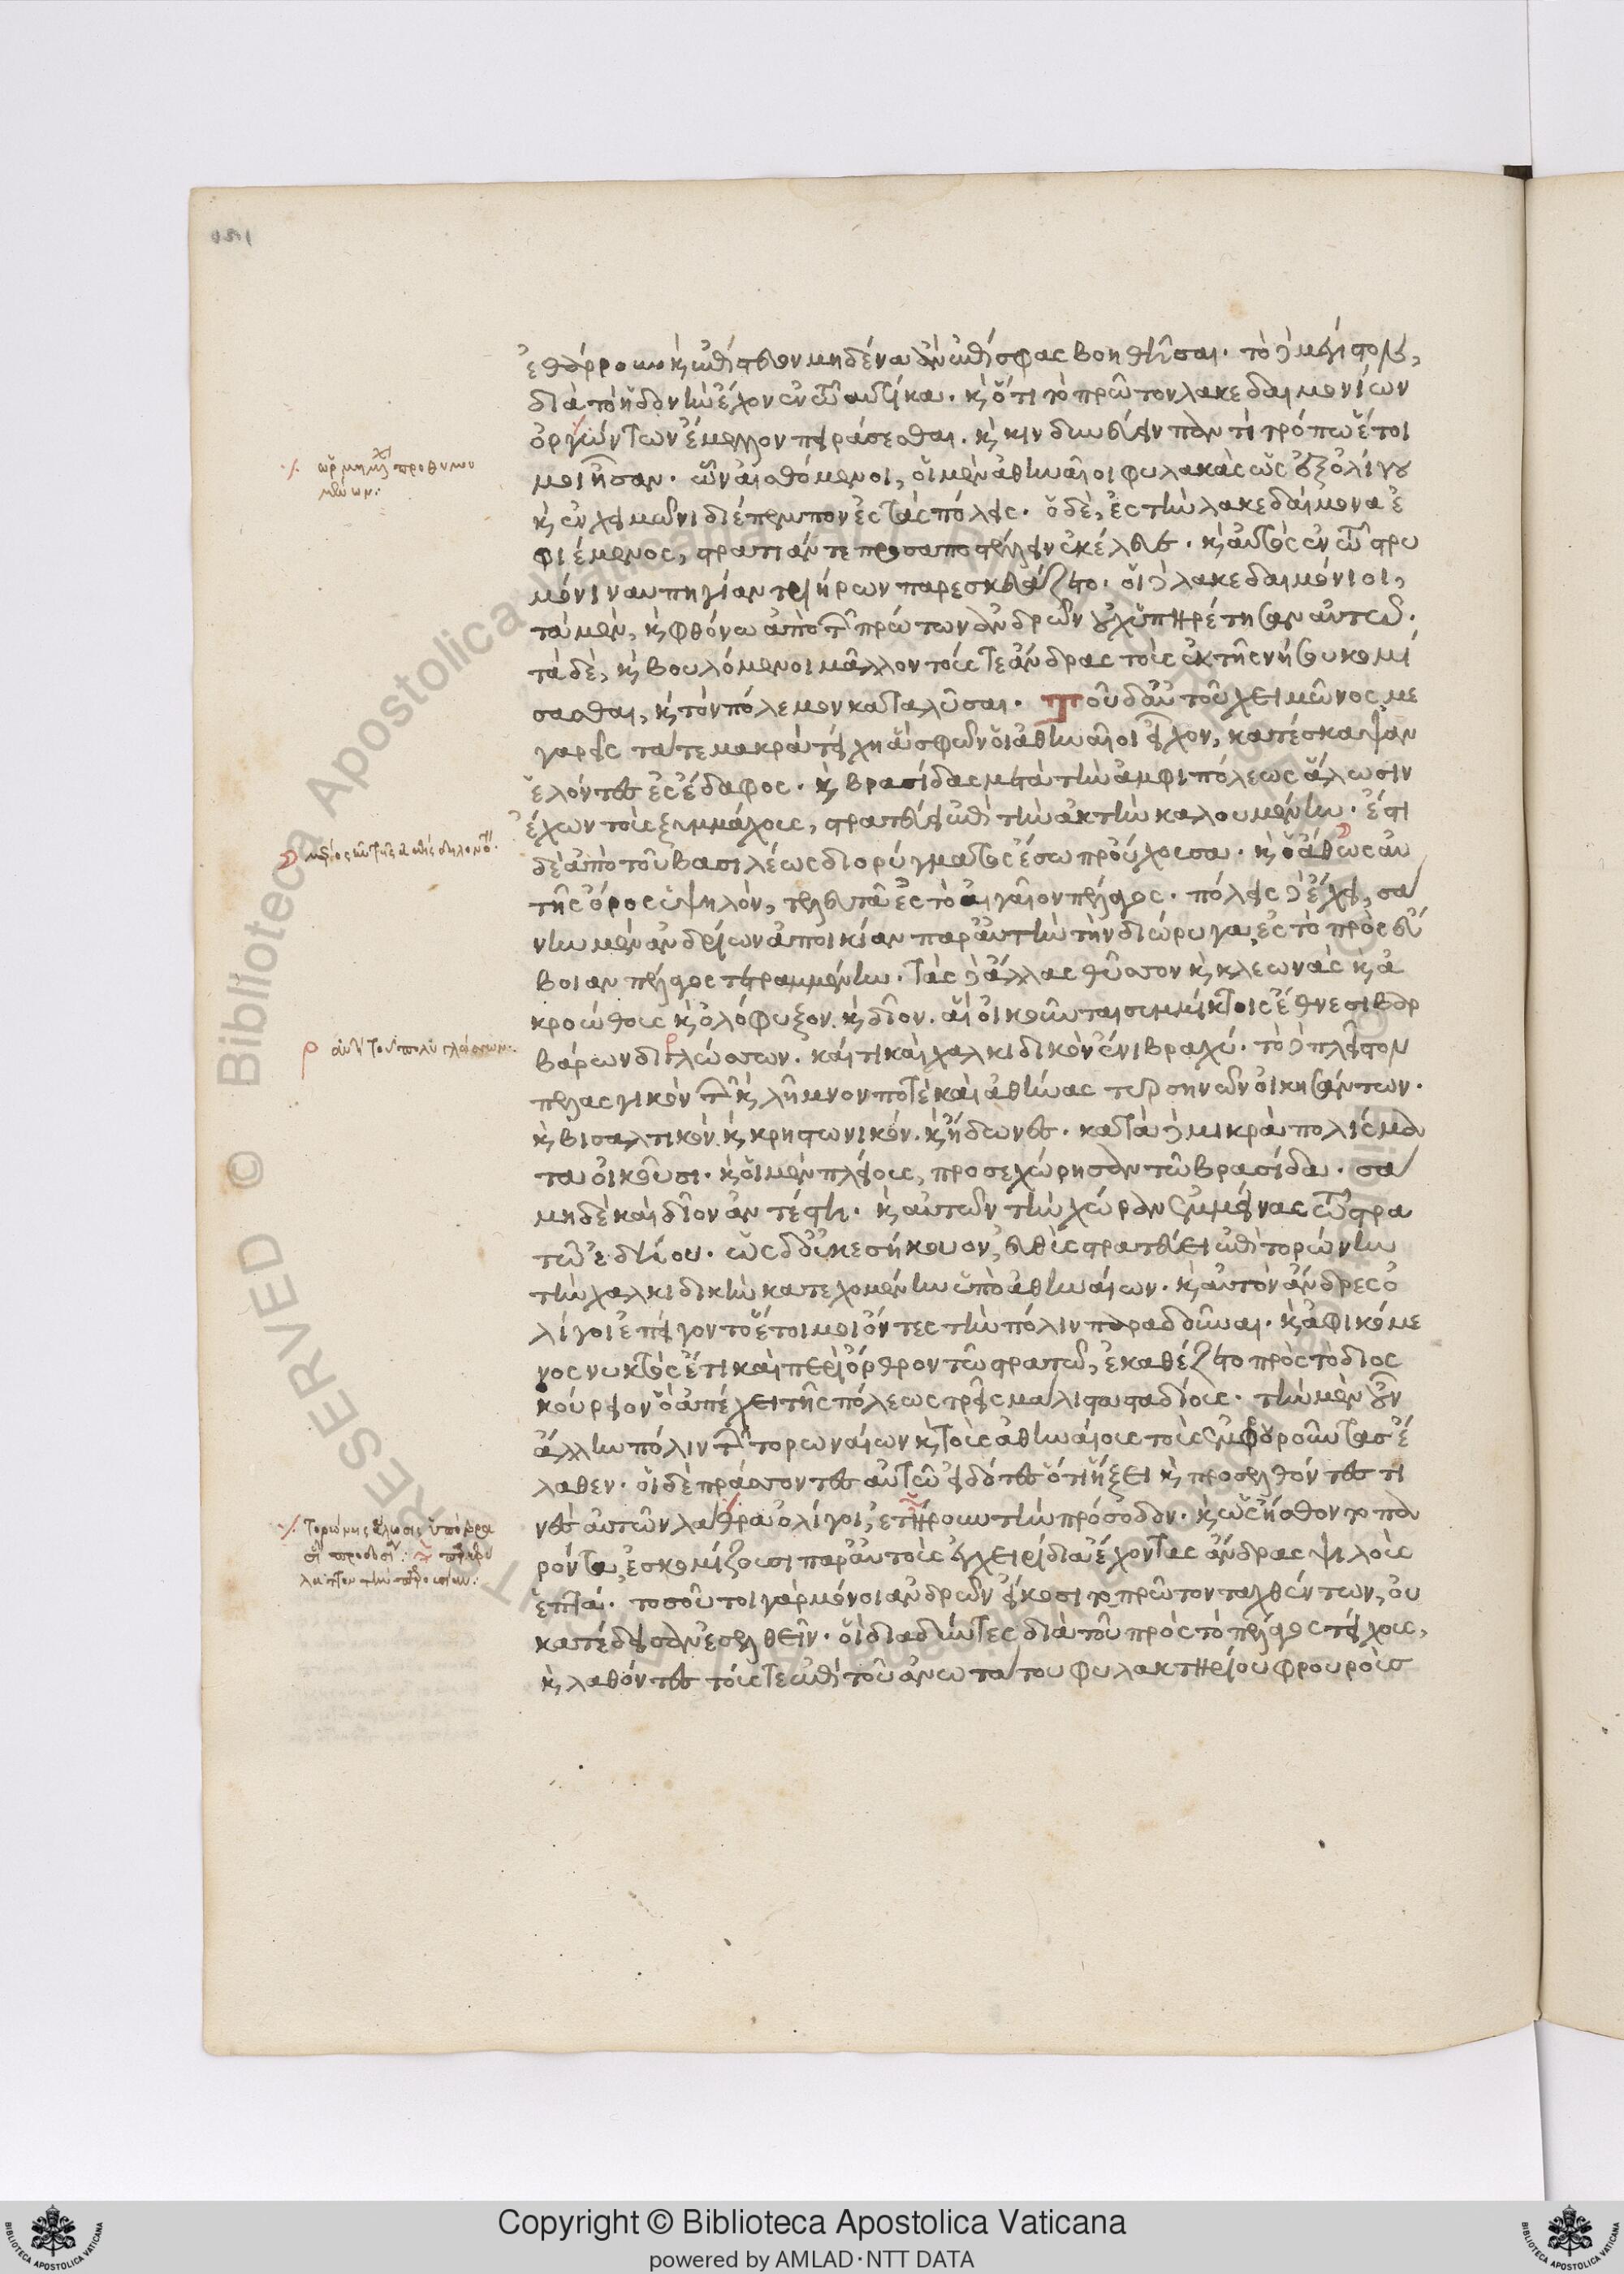 ἐθάρρουν κ ἐπίστευον μηδένα ἂν ἐπὶ σφας βοηθῆσαι. τὸ δὲ μέγιστον,
διὰ τὸ ἡδονὴν ἔχον ἐν τῶ αὐτίκα. κ ὅτι τὸ πρῶτον λακεδαιμονίων
ὀργώντων ἔμελλον πειράσεσθαι. κ κινδυνεύειν παντὶ τρόπω ἕτοι
μοι ἦσαν. ὧν αἰσθόμενοι, οἱ μὲν ἀθηναῖοι φυλακὰς ὡς ἐξ ὀλίγου
κ ἐν χειμῶνι διέπεμπον ἐς τὰς πόλεις. ὁ δὲ, ἐς τὴν λακεδαίμονα ἐ
φιέμενος, στρατιάν τε προσαποστέλλειν ἐκέλευε. κ αὐτὸς ἐν τῶ στρυ
μόνι ναυπηγίαν τριήρων παρεσκευάζετο. οἱ δὲ λακεδαιμόνιοι,
τὰ μὲν, κ φθόνω ἀπὸ τῶν πρώτων ἀνδρῶν οὐχ ὑπηρέτησαν αὐτῶ.
τὰ δὲ, κ βουλόμενοι μᾶλλον τούς τε ἄνδρας τοὺς ἐκ τῆς νήσου κομί
σασθαι, κ τὸν πόλεμον καταλῦσαι. Τοῦ δ' αὐτοῦ χειμῶνος με
γαρεῖς τά τε μακρὰ τείχη ἃ σφῶν οἱ ἀθηναῖοι εἶχον, κατέσκαψαν
ἑλόντες ἐς ἔδαφος. κ βρασίδας μετὰ τὴν ἀμφιπόλεως ἅλωσιν
ἔχων τοὺς ξυμμάχους, στρατεύει ἐπὶ τὴν ἀκτὴν καλουμένην. ἔστι
δὲ ἀπὸ τοῦ βασιλέως διορύγματος ἔσω προύχουσα. κ ὁ ἄθως αὐ
τῆς ὄρος ὑψηλὸν, τελευτᾶ ἐς τὸ αἰγαῖον πέλαγος. πόλεις δὲ ἔχει, σά
νην μὲν ἀνδρίων ἀποικίαν παρ' αὐτὴν τὴν διώρυγα, ἐς τὸ πρὸς εὔ
βοιαν πέλαγος τετραμμένην. τὰς δὲ ἄλλας θύσσον κ κλεωνὰς κ ἀ
κροώθους κ ὀλόφυξον. κ δῖον. αἳ οἰκοῦνται συμμίκτοις ἔθνεσι βαρ
βάρων διγλώσσων. καί τι καὶ χαλκιδικὸν ἔνι βραχύ. τὸ δὲ πλεῖστον
πελασγικὸν τῶν κ λῆμνον ποτὲ καὶ ἀθήνας τυρσηνῶν οἰκησάντων.
κ βισαλτικόν. κ κρηστωνικόν. κ ἤδωνες. κατὰ δὲ μικρὰ πολίσμα
τα οἰκοῦσι. κ οἱ μὲν πλείους, προσεχώρησαν τῶ βρασίδα. σά
μη δὲ καὶ δῖον ἀντέστη. κ αὐτῶν τὴν χώραν ἐμμείνας τῶ στρα
τῶ ἐδήιου. ὡς δ' οὐκ ἐσήκουον, εὐθὺς στρατεύει ἐπὶ τορώνην
τὴν χαλκιδικὴν κατεχομένην ὑπὸ ἀθηναίων. κ αὐτὸν ἄνδρες ὀ
λίγοι ἐπήγοντο ἕτοιμοι ὄντες τὴν πόλιν παραδοῦναι. κ ἀφικόμε
νος νυκτὸς ἔτι καὶ περὶ ὄρθρον τῶ στρατῶ, ἐκαθέζετο πρὸς τὸ διος
κούρειον ὃ ἀπέχει τῆς πόλεως τρεῖς μάλιστα σταδίους. τὴν μὲν οὖν
ἄλλην πόλιν τῶν τορωναίων κ τοὺς ἀθηναίους τοὺς ἐμφρουροῦντας ἔ
λαθεν. οἱ δὲ πράσσοντες αὐτῶ εἰδότες ὅτι ἥξει κ προσελθόντες τι
νὲς αὐτῶν λάθρα ὀλίγοι, ἐτήρουν τὴν πρόσοδον. κ ὡς ἤσθοντο πα
ρόντα, ἐσκομίζουσι παρ' αὐτοὺς ἐγχειρίδια ἔχοντας ἄνδρας ψιλοὺς
ἑπτά. τοσοῦτοι γὰρ μόνοι ἀνδρῶν εἴκοσι τὸ πρῶτον ταχθέντων, οὐ
κατέδεισαν ἐσελθεῖν. οἳ διαδύντες διὰ τοῦ πρὸς τὸ πέλαγος τείχους,
κ λαθόντες τούς τε ἐπὶ τοῦ ἀνωτάτου φυλακτηρίου φρουροὺς
ἀντὶ τοῦ πολυγλώσσων:
Τορώνης ἅλωσις ὑπὸ βρα